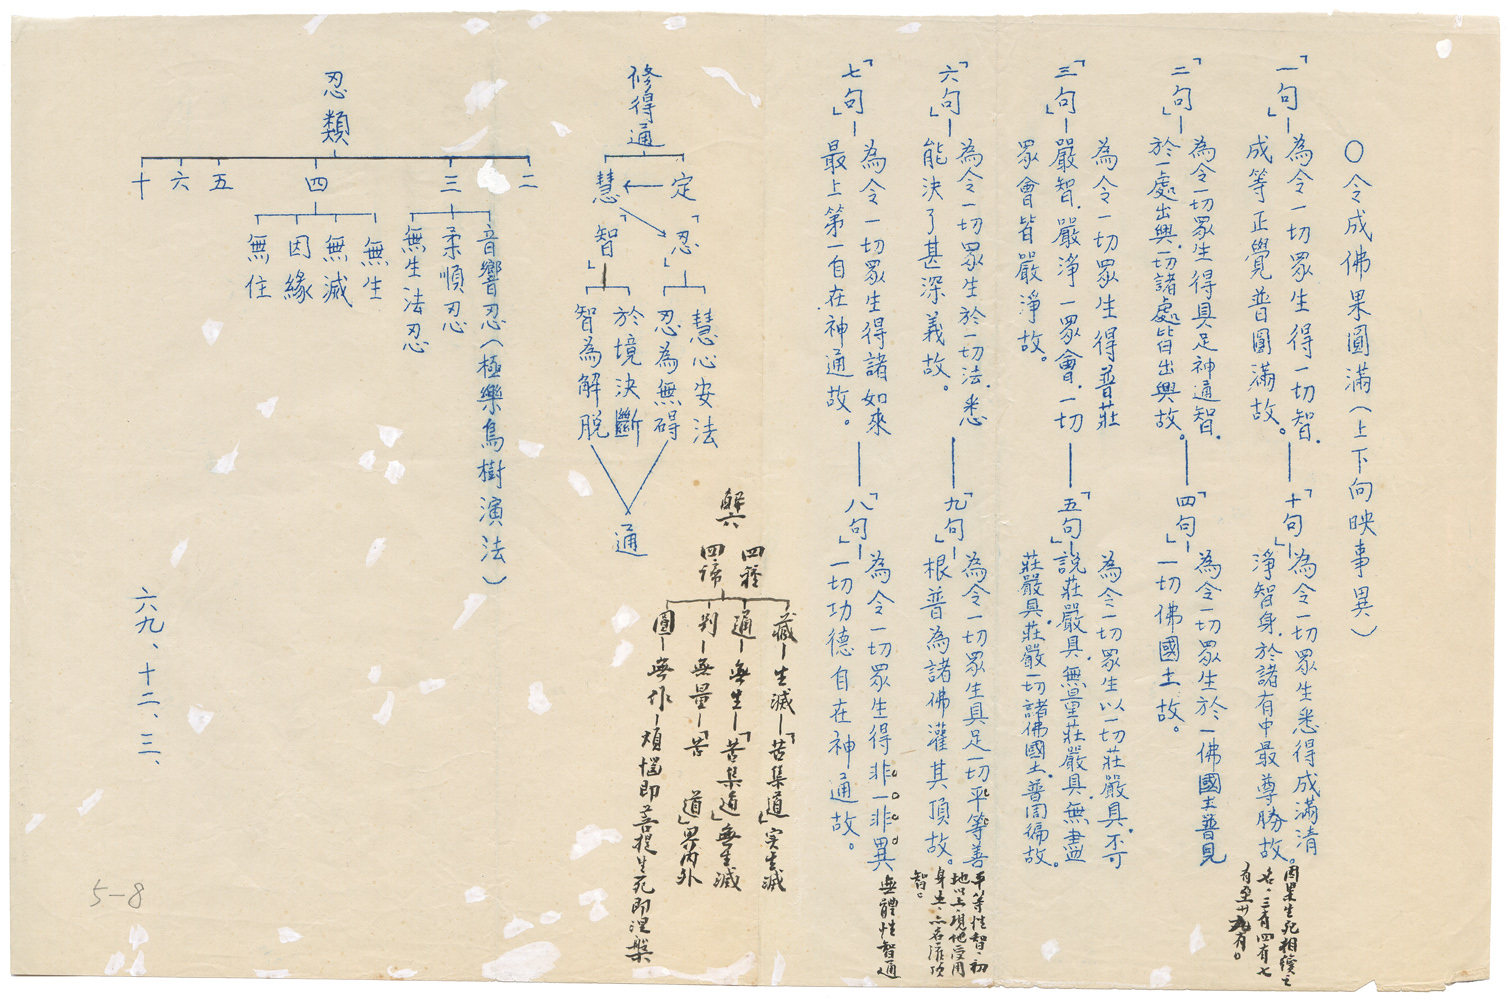 ○令成佛果圓滿（上下向映事異）
「一句」
為令一切眾生得一切智．
成等正覺普圓滿故。
「十句」
為令一切眾生悉得成滿清
淨智身．於諸有中最尊勝故。
因果生死相續之
名．三有四有七
有至廿九有。
「二句」
為令一切眾生得具足神通智．
於一處出興．一切諸處皆出興故。
「四句」
為令一切眾生於一佛國土普見
一切佛國土故。
「三句」
為令一切眾生得普莊
嚴智．嚴淨一眾會．一切
眾會皆嚴淨故。
「五句」
為令一切眾生以一切莊嚴具．不可
說莊嚴具．無量莊嚴具．無盡
莊嚴具．莊嚴一切諸佛國土．普周徧故。
「六句」
為令一切眾生於一切法．悉
能決了甚深義故。
「九句」
為令一切眾生具足一切平等善
根普為諸佛灌其頂故。
平等性智．初
地以上．現他受用
身土．亦名灌頂
智。
「七句」
為令一切眾生得諸如來
最上第一自在神通故。
「八句」
為令一切眾生得非一非異
一切功德自在神通故。
無體性智通
解六
四種
四諦
藏－生滅－「苦集道」實生滅
通－無生－「苦集道」無生滅
別－無量－「苦　道」界內外
圓－無作－煩惱即菩提生死即涅槃
修得通
定
慧
「忍」
「智」
慧心安法
忍為無碍
於境決斷
智為解脫
通
忍類
二
三
音響忍（極樂鳥樹演法）
柔順忍
無生法忍
四
無生
無滅
因緣
無住
五
六
十
六九、十二、三、
5-8